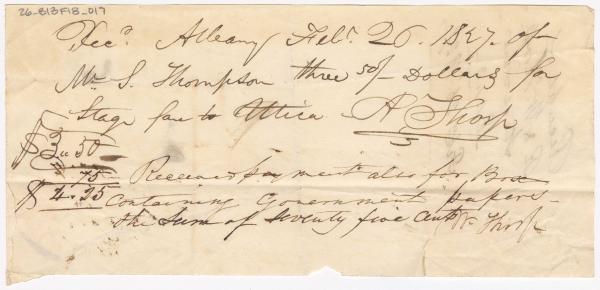 26-B13F18-017
Rec.d Albany Feb.r 26. 1827. of
Mr. S. Thompson three 50/ Dollars for
Stage fare to Utica A Thorp
$3.. 50
75
$4.25
Received payment also for Box
containing Government papers
the sum of seventy five cents Thorp